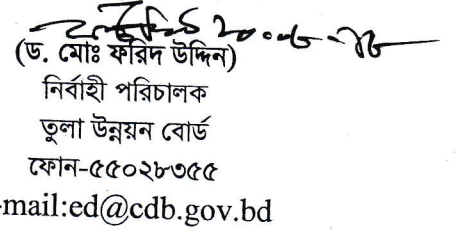 (ড. মোঃ ফরিদ উদ্দিন)
নির্বাহী পরিচালক
তুলা উন্নয়ন বোর্ড
ফোন-৫৫০২৮৩৫৫
-mail:ed@cdb.gov.bd